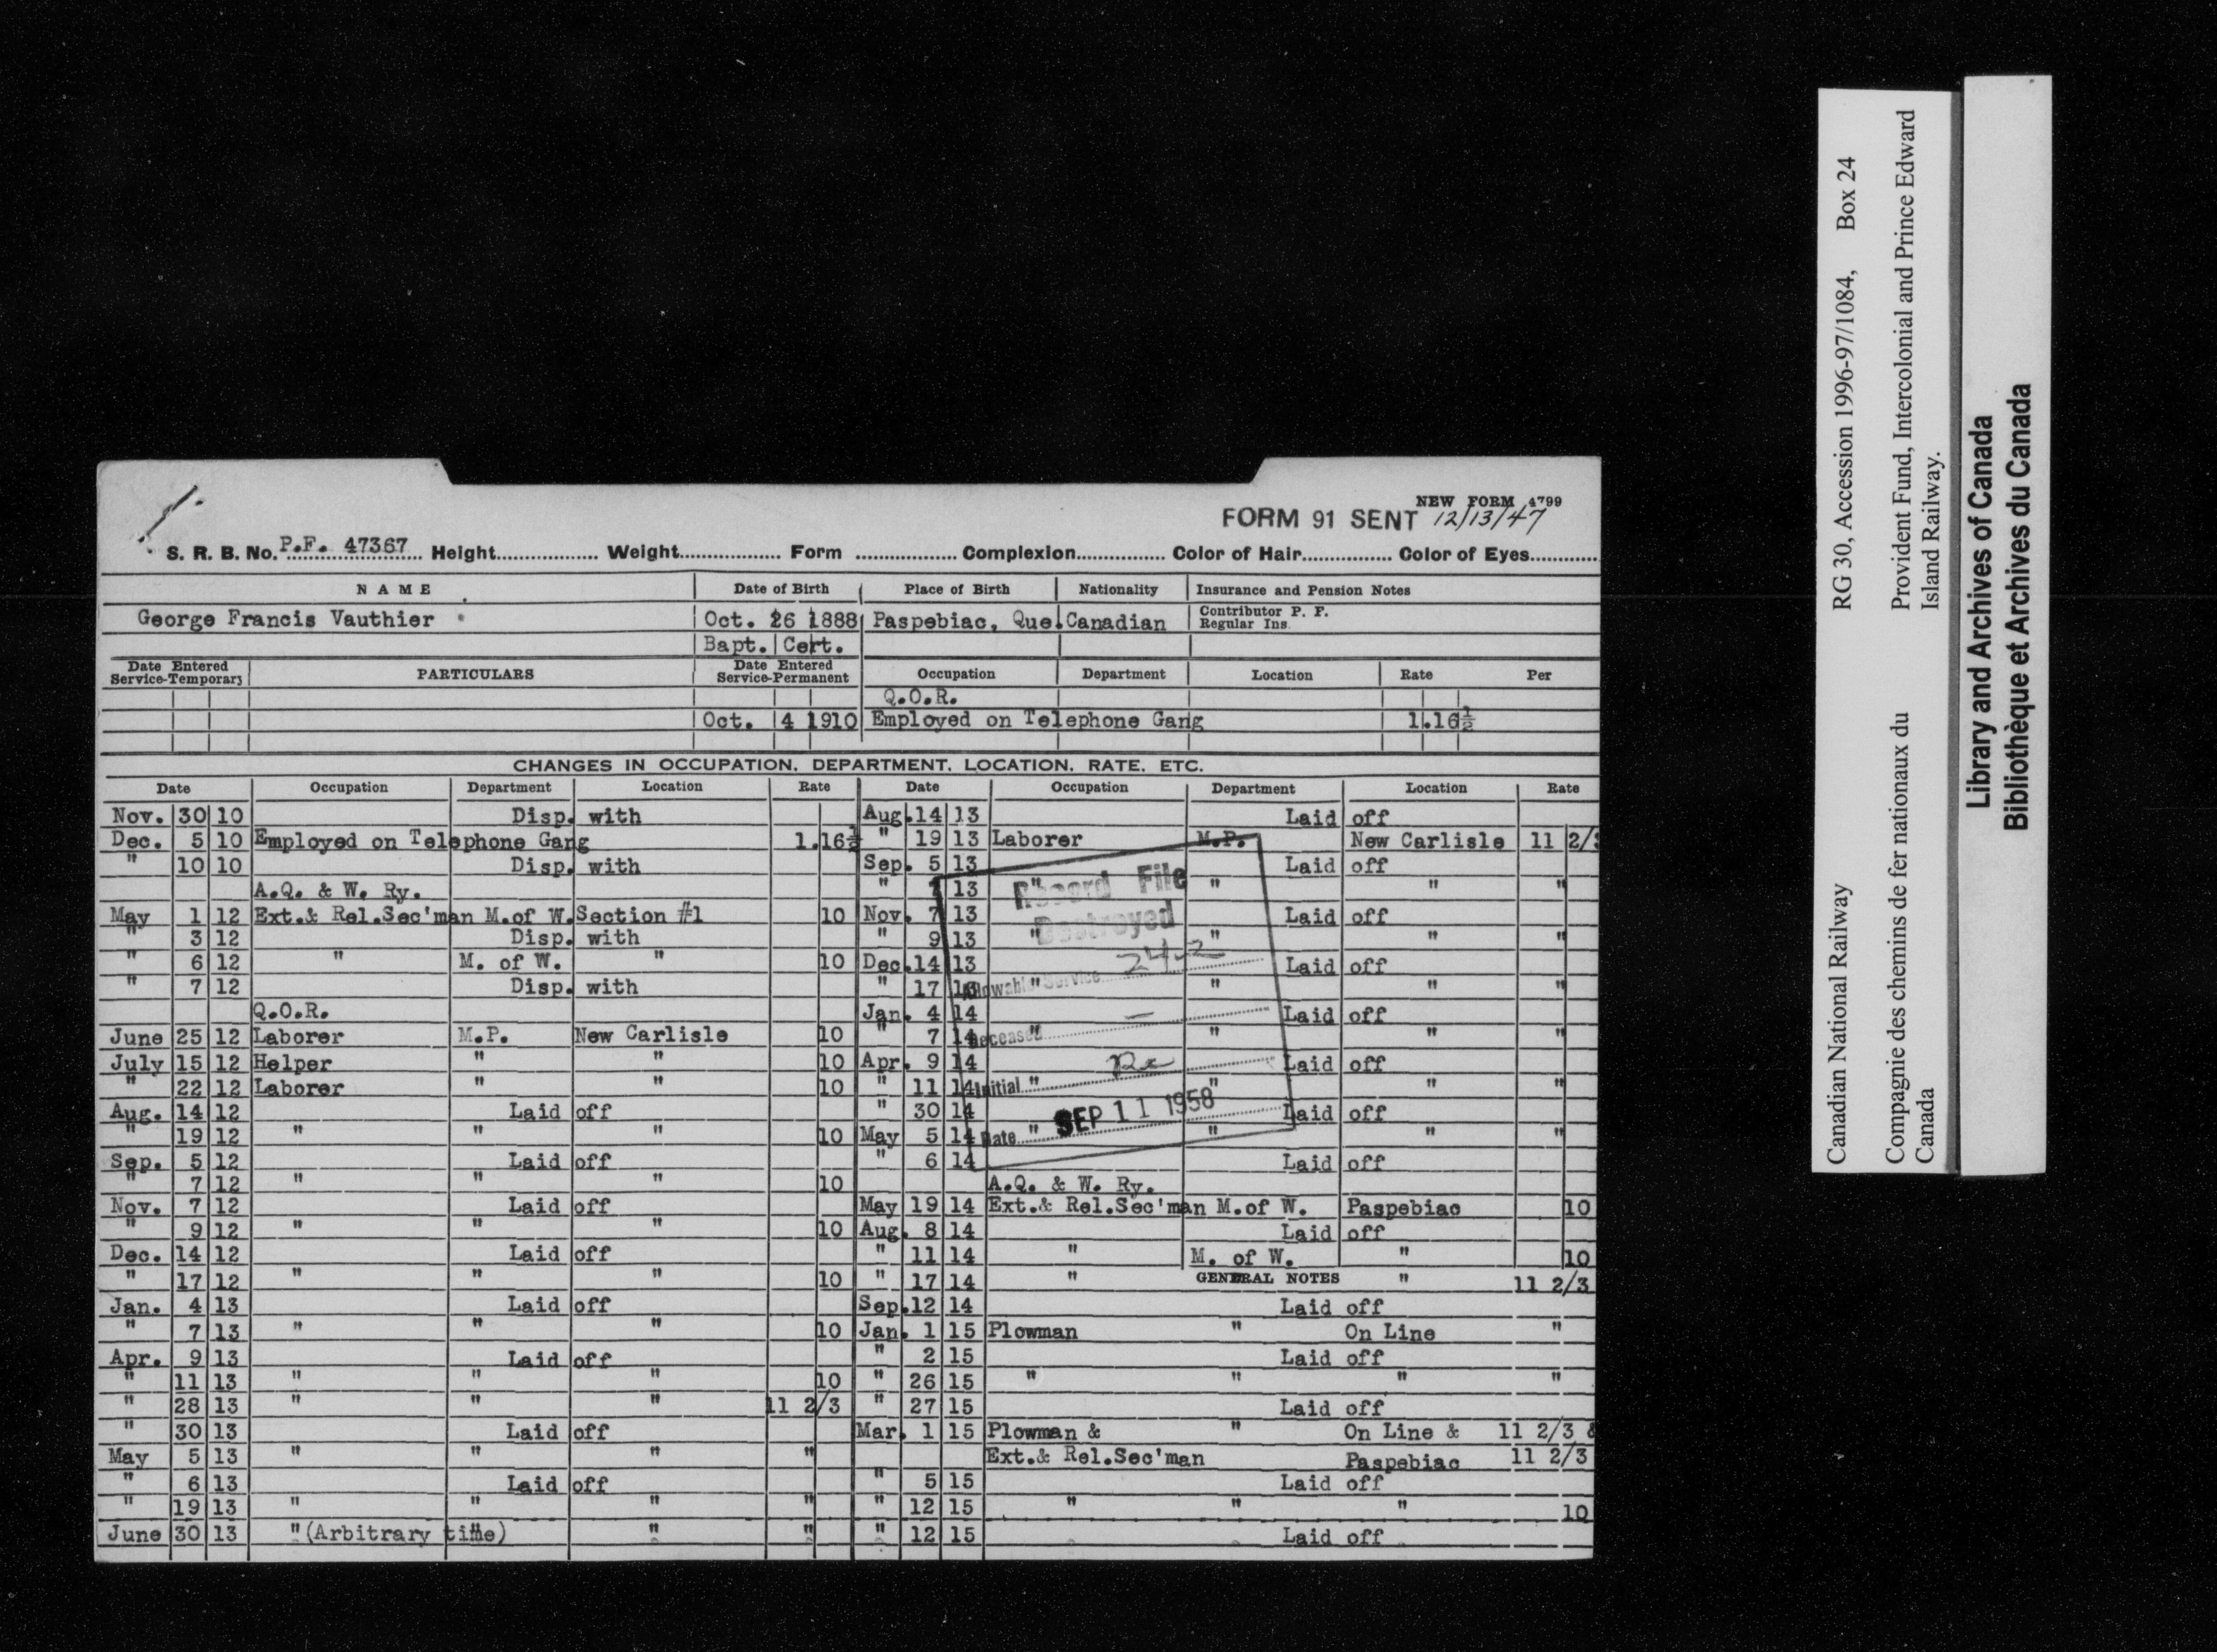 NEW FORM 4799
FORM 91 SENT 12/13/47
S. R. B. No. P.F. 47367 Height Weight Form Complexion Color of Hair Color of Eyes
NAME Date of Birth Place of Birth Nationality Insurance and Pension Notes
George Francis Vauthier Oct. 26 1888 Paspebiac, Que. Canadian Contributor P. F.
Regular Ins.
Bapt. Cert.
Date Entered Service-Temporary PARTICULARS Date Entered Service-Permanent Occupation Department Location Rate Per
Q.O.R.
Oct. 4 1910 Employed on Telephone Gang 1.16½
CHANGES IN OCCUPATION, DEPARTMENT, LOCATION, RATE, ETC.
Date Occupation Department Location Rate
Nov. 30 10 Disp. with
Dec. 5 10 Employed on Telephone Gang 1.16½
" 10 10 Disp. with
A.Q. & W. Ry.
May 1 12 Ext.& Rel.Sec'man M.of W. Section #1 10
" 3 12 Disp. with
" 6 12 " M. of W. " 10
" 7 12 Disp. with
Q.O.R.
June 25 12 Laborer M.P. New Carlisle 10
July 15 12 Helper " " 10
" 22 12 Laborer " " 10
Aug. 14 12 Laid off
" 19 12 " " " 10
Sep. 5 12 Laid off
" 7 12 " " " 10
Nov. 7 12 Laid off
" 9 12 " " " 10
Dec. 14 12 Laid off
" 17 12 " " " 10
Jan. 4 13 Laid off
" 7 13 " " " 10
Apr. 9 13 Laid off
" 11 13 " " " 10
" 28 13 " " " 11 2/3
" 30 13 Laid off
May 5 13 " " " "
" 6 13 Laid off
" 19 13 " " " "
June 30 13 " (Arbitrary time) " " "
Date Occupation Department Location Rate
Aug. 14 13 Laid off
" 19 13 Laborer M.P. New Carlisle 11 2/3
Sep. 5 13 Laid off
" 7 13 " " " "
Nov. 7 13 Laid off
" 9 13 " " " "
Dec. 14 13 Laid off
" 17 13 " " " "
Jan. 4 14 Laid off
" 7 14 " " " "
Apr. 9 14 Laid off
" 11 14 " " " "
" 30 14 Laid off
May 5 14 " " " "
" 6 14 Laid off
A.Q. & W. Ry.
May 19 14 Ext.& Rel.Sec'man M.of W. Paspebiac 10
Aug. 8 14 Laid off
" 11 14 " M. of W. " 10
GENERAL NOTES
" 17 14 " " 11 2/3
Sep. 12 14 Laid off
Jan. 1 15 Plowman " On Line "
" 2 15 Laid off
" 26 15 " " " "
" 27 15 Laid off
Mar. 1 15 Plowman & " On Line & 11 2/3 &
Ext.& Rel.Sec'man Paspebiac 11 2/3
" 5 15 Laid off
" 12 15 " " " 10
" 12 15 Laid off
Record File
Destroyed
Allowable Service
Deceased —
Initial
Date SEP 11 1958
Canadian National Railway RG 30, Accession 1996-97/1084, Box 24
Compagnie des chemins de fer nationaux du Canada
Provident Fund, Intercolonial and Prince Edward Island Railway.
Library and Archives of Canada
Bibliothèque et Archives du Canada